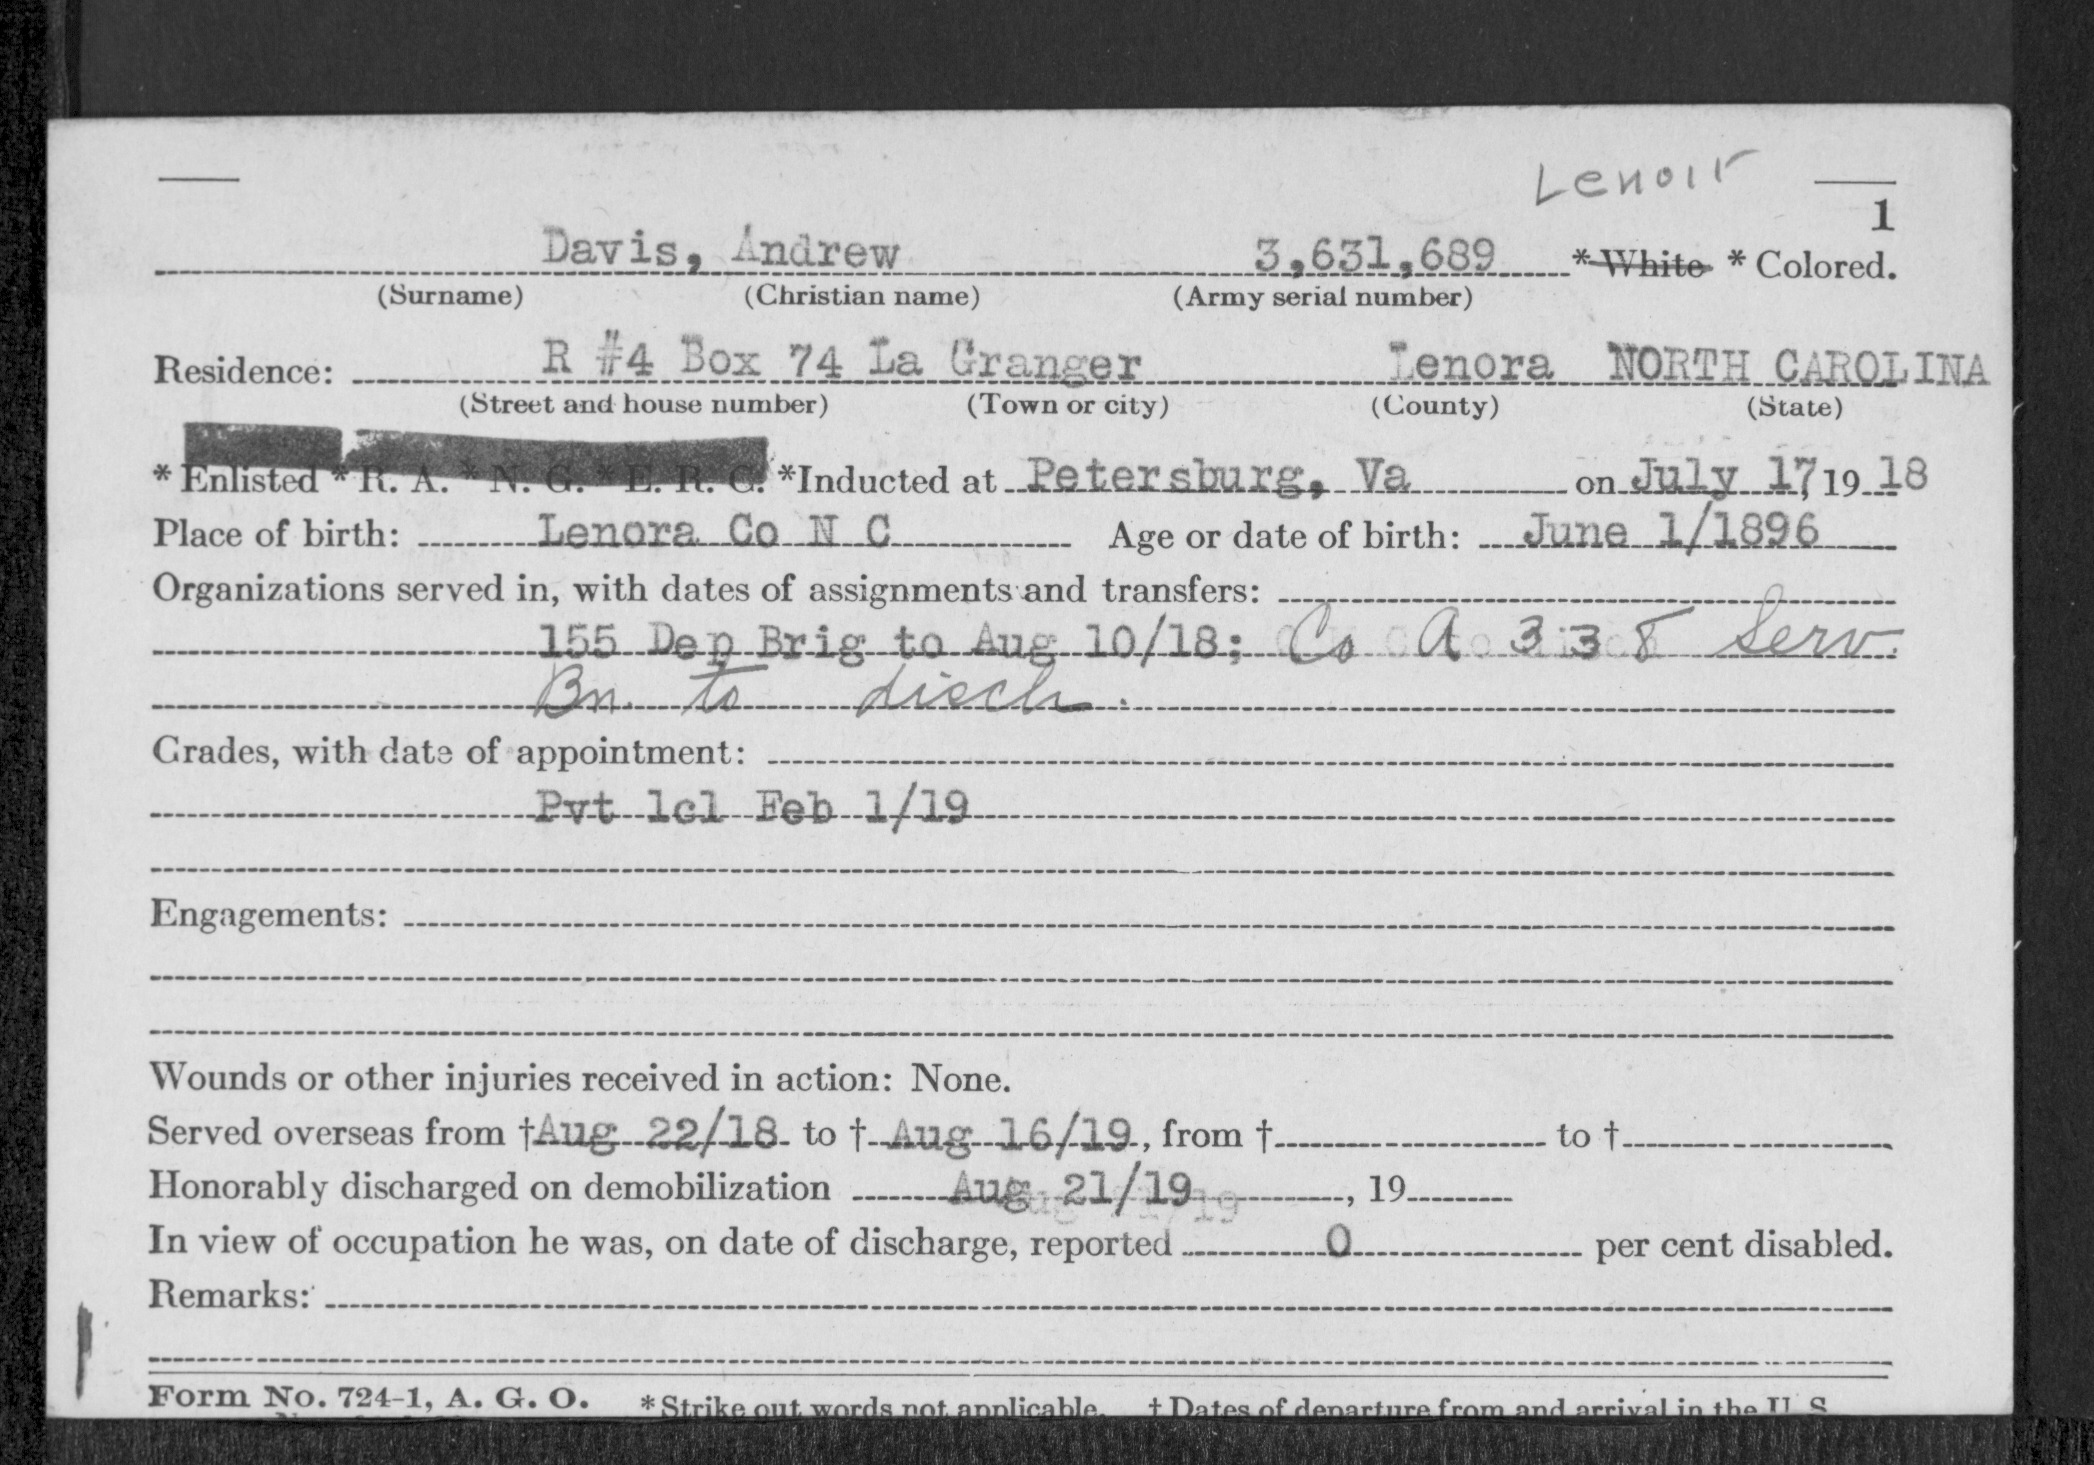 Lenoir
1
Davis, Andrew 3,631,689 * White * Colored.
(Surname) (Christian name) (Army serial number)
Residence: R #4 Box 74 La Granger Lenora NORTH CAROLINA
(Street and house number) (Town or city) (County) (State)
* Enlisted * R. A. * N. G. * E. R. C. *Inducted at Petersburg, Va on July 17, 19 18
Place of birth: Lenora Co N C Age or date of birth: June 1/1896
Organizations served in, with dates of assignments and transfers:
155 Dep Brig to Aug 10/18; Co A 338 Serv.
Bn. to disch.
Grades, with date of appointment:
Pvt 1cl Feb 1/19
Engagements:
Wounds or other injuries received in action: None.
Served overseas from †Aug 22/18 to † Aug 16/19, from † to †
Honorably discharged on demobilization Aug 21/19, 19
In view of occupation he was, on date of discharge, reported 0 per cent disabled.
Remarks:
Form No. 724-1, A. G. O. *Strike out words not applicable. † Dates of departure from and arrival in the U. S.